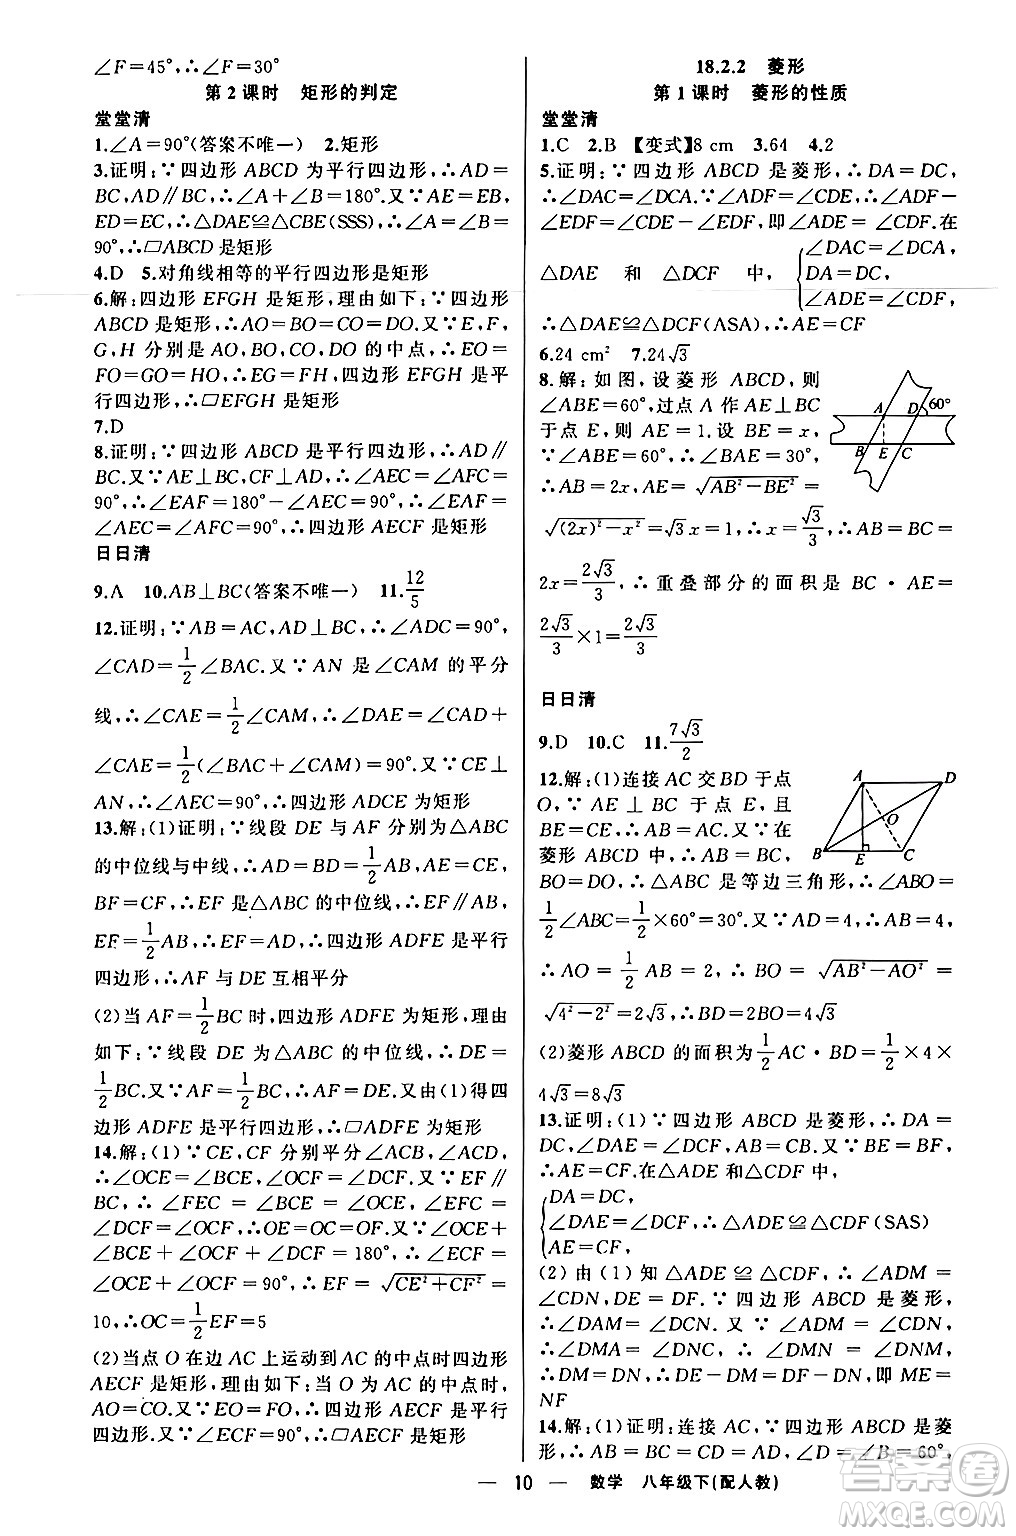 ∠F=45°,∴∠F=30°
第2课时 矩形的判定
堂堂清
1.∠A=90°(答案不唯一) 2.矩形
3.证明:∵四边形ABCD为平行四边形,∴AD=
BC,AD∥BC,∴∠A+∠B=180°.又∵AE=EB,
ED=EC,∴△DAE≌△CBE(SSS),∴∠A=∠B=
90°,∴▱ABCD是矩形
4.D 5.对角线相等的平行四边形是矩形
6.解:四边形EFGH是矩形,理由如下:∵四边形
ABCD是矩形,∴AO=BO=CO=DO.又∵E,F,
G,H分别是AO,BO,CO,DO的中点,∴EO=
FO=GO=HO,∴EG=FH,四边形EFGH是平
行四边形,∴▱EFGH是矩形
7.D
8.证明:∵四边形ABCD是平行四边形,∴AD∥
BC.又∵AE⊥BC,CF⊥AD,∴∠AEC=∠AFC=
90°,∴∠EAF=180°-∠AEC=90°,∴∠EAF=
∠AEC=∠AFC=90°,∴四边形AECF是矩形
日日清
9.A 10.AB⊥BC(答案不唯一) 11.12/5
12.证明:∵AB=AC,AD⊥BC,∴∠ADC=90°,
∠CAD=1/2∠BAC.又∵AN是∠CAM的平分
线,∴∠CAE=1/2∠CAM,∴∠DAE=∠CAD+
∠CAE=1/2(∠BAC+∠CAM)=90°.又∵CE⊥
AN,∴∠AEC=90°,∴四边形ADCE为矩形
13.解:(1)证明:∵线段DE与AF分别为△ABC
的中位线与中线,∴AD=BD=1/2AB,AE=CE,
BF=CF,∴EF是△ABC的中位线,∴EF∥AB,
EF=1/2AB,∴EF=AD,∴四边形ADFE是平行
四边形,∴AF与DE互相平分
(2)当AF=1/2BC时,四边形ADFE为矩形,理由
如下:∵线段DE为△ABC的中位线,∴DE=
1/2BC.又∵AF=1/2BC,∴AF=DE.又由(1)得四
边形ADFE是平行四边形,∴▱ADFE为矩形
14.解:(1)∵CE,CF分别平分∠ACB,∠ACD,
∴∠OCE=∠BCE,∠OCF=∠DCF.又∵EF∥
BC,∴∠FEC=∠BCE=∠OCE,∠EFC=
∠DCF=∠OCF,∴OE=OC=OF.又∵∠OCE+
∠BCE+∠OCF+∠DCF=180°,∴∠ECF=
∠OCE+∠OCF=90°,∴EF=√(CE²+CF²)=
10,∴OC=1/2EF=5
(2)当点O在边AC上运动到AC的中点时四边形
AECF是矩形,理由如下:当O为AC的中点时,
AO=CO.又∵EO=FO,∴四边形AECF是平行四
边形.∵∠ECF=90°,∴▱AECF是矩形
18.2.2 菱形
第1课时 菱形的性质
堂堂清
1.C 2.B 【变式】8 cm 3.64 4.2
5.证明:∵四边形ABCD是菱形,∴DA=DC,
∴∠DAC=∠DCA.∵∠ADF=∠CDE,∴∠ADF-
∠EDF=∠CDE-∠EDF,即∠ADE=∠CDF.在
△DAE和△DCF中,{∠DAC=∠DCA,
DA=DC,
∠ADE=∠CDF,
∴△DAE≌△DCF(ASA),∴AE=CF
6.24 cm² 7.24√3
8.解:如图,设菱形ABCD,则
∠ABE=60°,过点A作AE⊥BC
于点E,则AE=1.设BE=x,
∵∠ABE=60°,∴∠BAE=30°,
∴AB=2x,AE=√(AB²-BE²)
=√((2x)²-x²)=√3x=1,∴x=√3/3,∴AB=BC=
2x=2√3/3,∴重叠部分的面积是BC·AE=
2√3/3×1=2√3/3
A D 60° B E C
日日清
9.D 10.C 11.7√3/2
12.解:(1)连接AC交BD于点
O,∵AE⊥BC于点E,且
BE=CE,∴AB=AC.又∵在
菱形ABCD中,∴AB=BC,
BO=DO,∴△ABC是等边三角形,∴∠ABO=
1/2∠ABC=1/2×60°=30°.又∵AD=4,∴AB=4,
∴AO=1/2AB=2,∴BO=√(AB²-AO²)=
√(4²-2²)=2√3,∴BD=2BO=4√3
(2)菱形ABCD的面积为1/2AC·BD=1/2×4×
4√3=8√3
A D O B E C
13.证明:(1)∵四边形ABCD是菱形,∴DA=
DC,∠DAE=∠DCF,AB=CB.又∵BE=BF,
∴AE=CF.在△ADE和△CDF中,
{DA=DC,
∠DAE=∠DCF,∴△ADE≌△CDF(SAS)
AE=CF,
(2)由(1)知△ADE≌△CDF,∴∠ADM=
∠CDN,DE=DF.∵四边形ABCD是菱形,
∴∠DAM=∠DCN.又∵∠ADM=∠CDN,
∴∠DMA=∠DNC,∴∠DMN=∠DNM,
∴DM=DN,∴DE-DM=DF-DN,∴ME=
NF
14.解:(1)证明:连接AC,∵四边形ABCD是菱
形,∴AB=BC=CD=AD,∠D=∠B=60°,
— 10 — 数学 八年级下(配人教)
答案圈
MXQE.COM